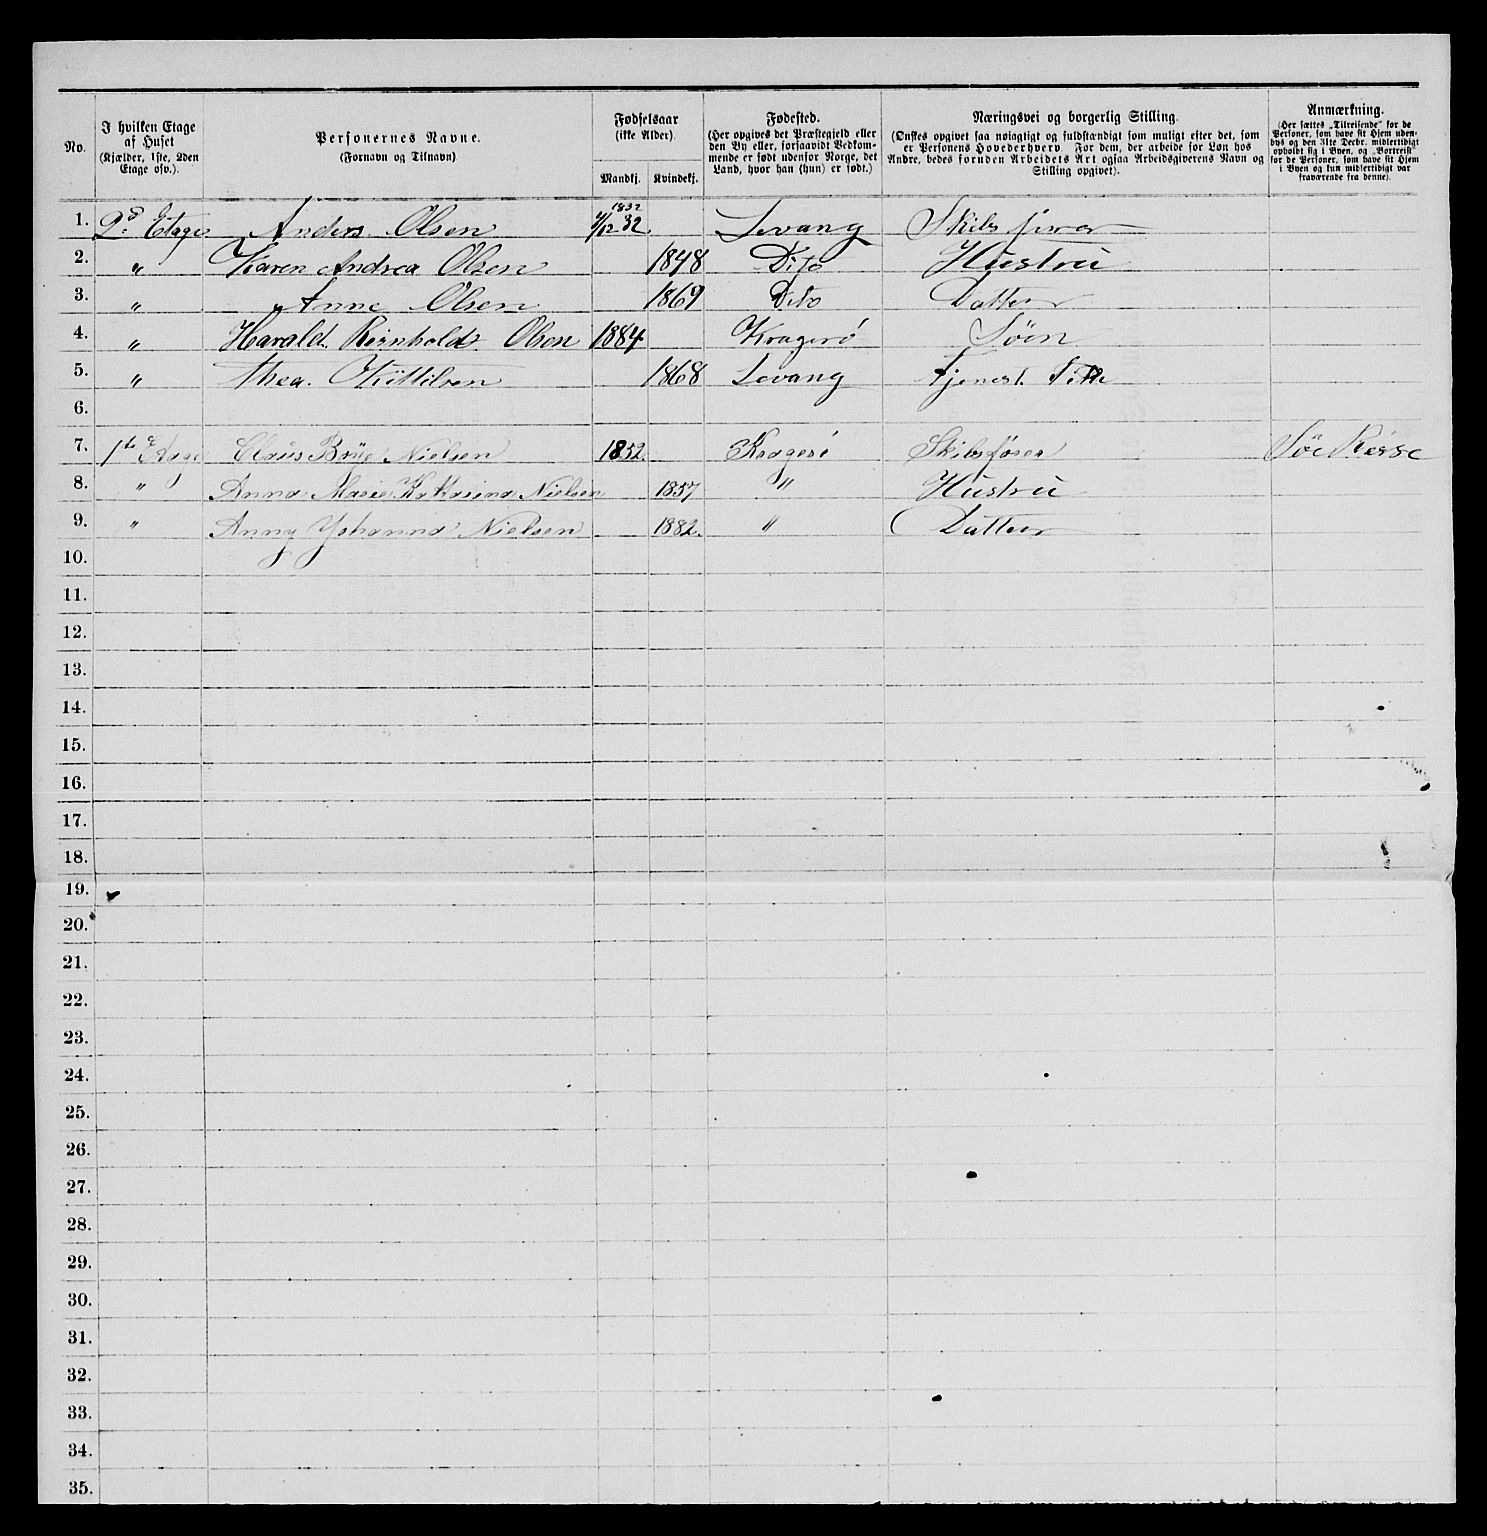 No.
I hvilken Etage af Huset (Kjælder, 1ste, 2den Etage osv.).
Personernes Navne. (Fornavn og Tilnavn)
Fødselsaar (ikke Alder).
Mandkj. Kvindekj.
Fødested. (Her opgives det Præstegjeld eller den By eller, forsaavidt Vedkommende er født udenfor Norge, det Land, hvor han (hun) er født.)
Næringsvei og borgerlig Stilling. (Ønskes opgivet saa nøiagtigt og fuldstændigt som muligt efter det, som er Personens Hovederhverv. For dem, der arbeide for Løn hos Andre, bedes foruden Arbeidets Art ogsaa Arbeidsgiverens Navn og Stilling opgivet).
Anmærkning. (Her sættes „Tilreisende" for de Personer, som have sit Hjem udenbys og den 31te Decbr. midlertidigt opholdt sig i Byen, og „Bortreist" for de Personer, som have sit Hjem i Byen og kun midlertidigt var fraværende fra denne).
1832
1. 2d Etage Anders Olsen 4/12 32 Levang Skibsfører
2. " Karen Andrea Olsen 1848 Dito Hustru
3. " Anne Olsen 1869 Dito Datter
4. " Harald Reinholdt Olsen 1884 Kragerö Söen
5. " Thea Kittilsen 1868 Levang Tjenest
6.
7. 1ste Etage Claus Brüe Nielsen 1852. Kragerö Skibsfører
8. " Anna Marie Katharina Nielsen 1857 " Hustru
9. " Anny Johanna Nielsen 1882. " Datter
10.
11.
12.
13.
14.
15.
16.
17.
18.
19.
20.
21.
22.
23.
24.
25.
26.
27.
28.
29.
30.
31.
32.
33.
34.
35.